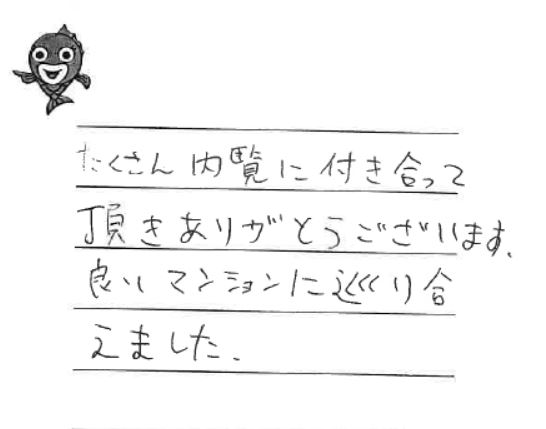 たくさん内覧に付き合って
頂きありがとうございます.
良いマンションに巡り合
えました.